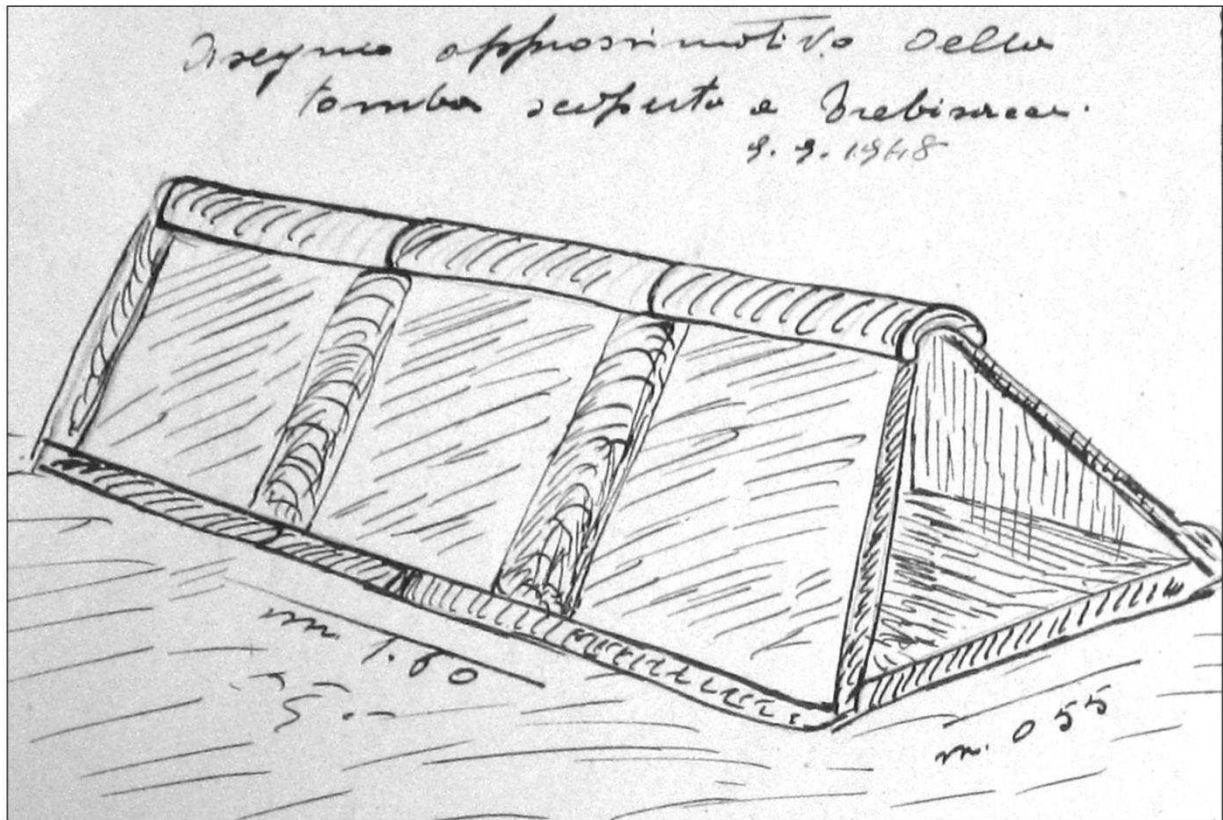 Disegno approssimativo della
tomba scoperta a Trebisacce.
9.9.1948
m. 1.80
m. 0 55